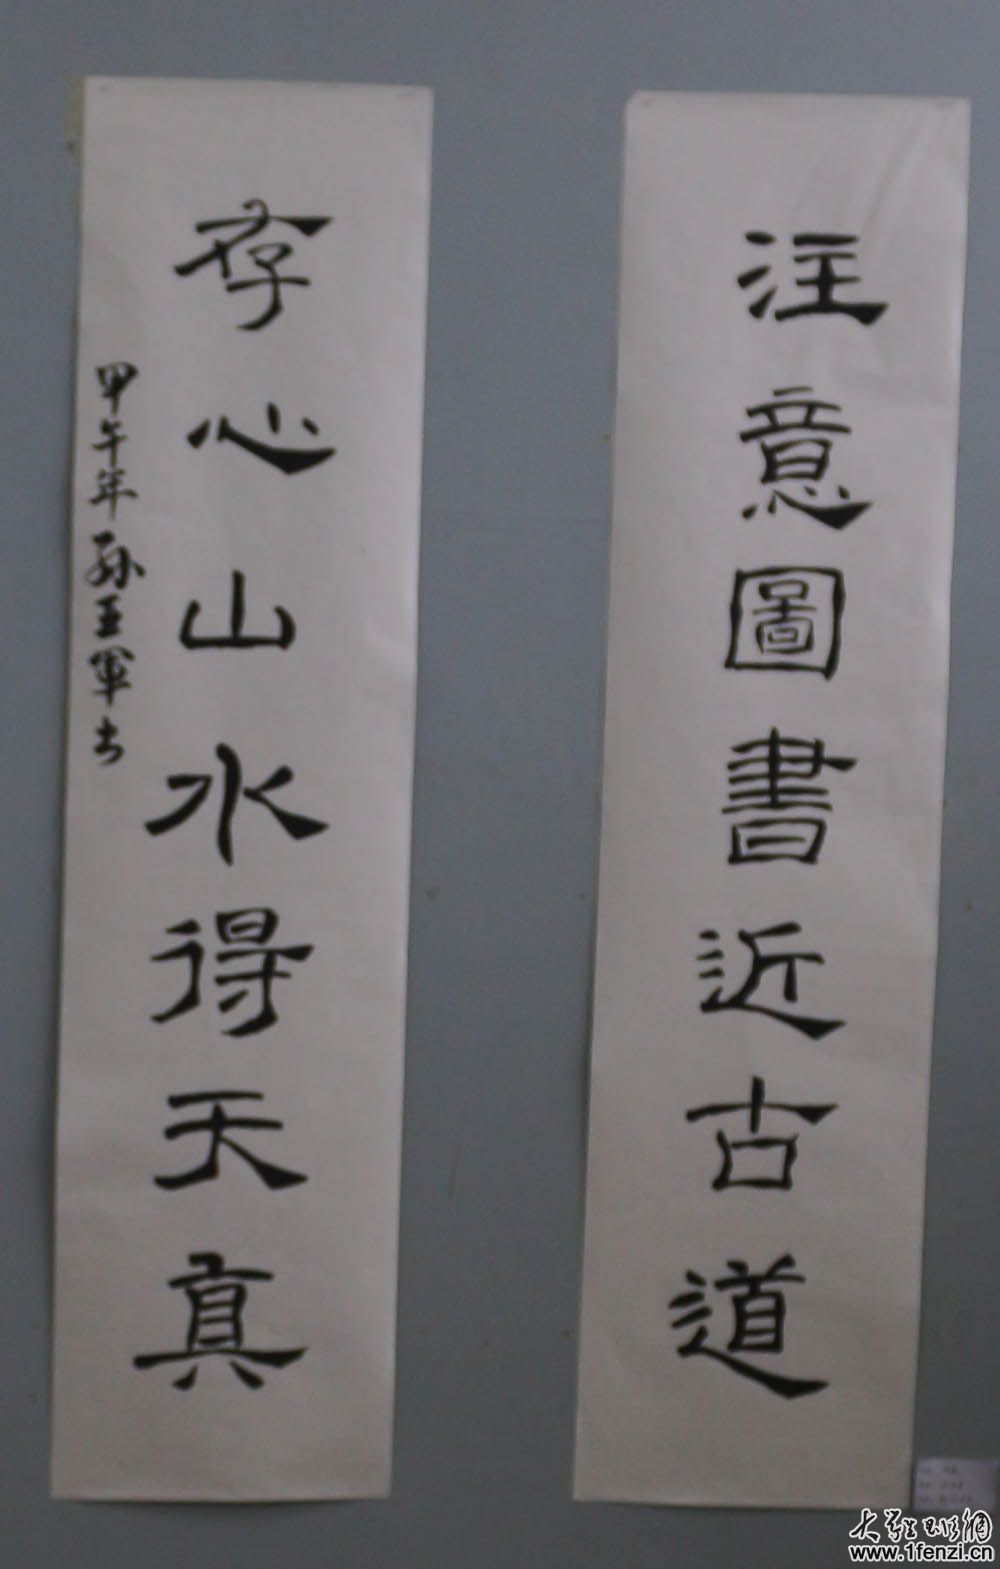 注意圖書近古道
存心山水得天真
甲午年孫玉軍书
www.1fenzi.cn